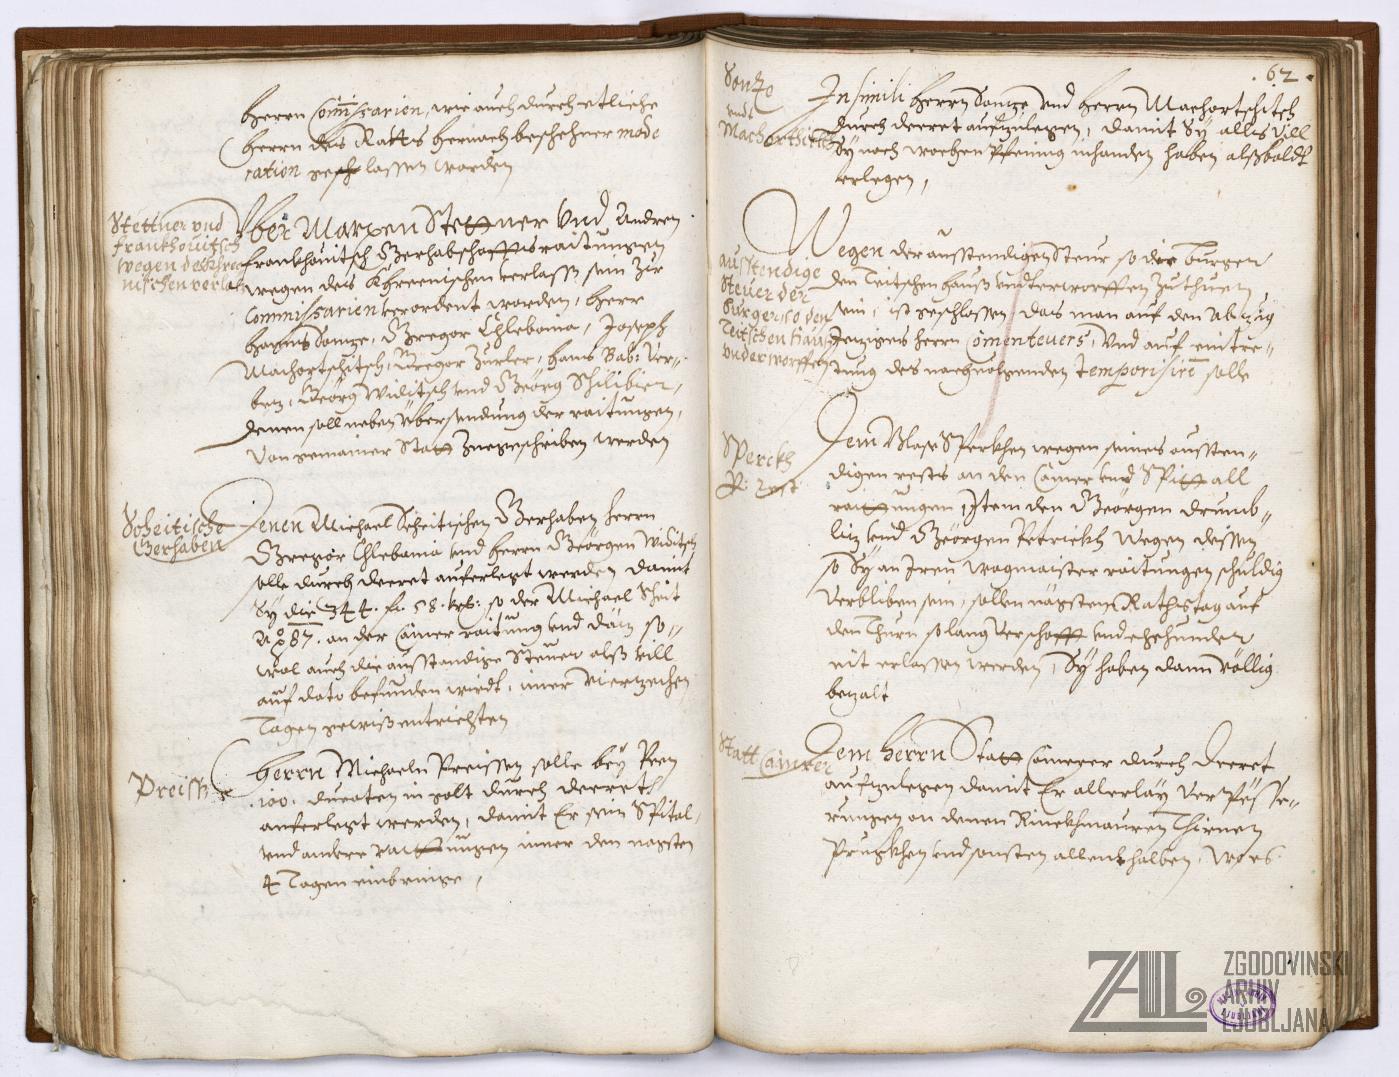 Herrn Commissarien, wie auch durch etliche
Herrn des Ratts hernach beschehner mode
ration geschlassen worden
Stettner und
Frankhouitsch
wegen des Khree
nischen verlass
Vber Marxen Stettner Vnd Andreen
Frankhouitsch Gerhabschafftsraitungen
wegen des Khreenischen verlass sein zur
Commissarien verordent worden, Herr
Hanns Sonze, Gregor Chlebaina, Joseph
Machortschitsch, Gregor Zurler, Hans Bab: Ver-
ben, Georg Widitsch vnd Georg Schiliber,
denen soll neben Vbersendung der raitungen,
Von gemainer Statt zuegeschriben werden
Scheitische
Gerhaben
Denen Michael Scheitischen Gerhaben Herrn
Gregor Chlebaina vnd Herrn Georgen Widitsch
solle durch decret auferlegt werden damit
Sy die 344. fl. 58. so der Michael Scheit
an der Camer raitung vnd so-
wol auch die ausstandige Steuer als vill
auf dato befunden wirdt, inner viertzechen
Tagen gewiss entrichten
Preiss
Herrn Michaeln Preissen solle bey Peen
100. ducaten in golt durch decret
auferlegt werden, damit Er sein Spital
vnd andere raittungen inner den nagsten
4 Tagen einbringe,
. 62 .
Sonze
vnd
Machorthitsch
In simili Herrn Sonze vnd Herrn Machortschitsch
durch decret aufzulegen, damit Sy alles Vill
Sy noch wochen Pfening inhanden haben alssbaldt
erlegen,
ausstendige
Steuer der
Burger so den
Teitschen Haus
vnderworffen
Wegen der ausstendigen Steur so die Burger
den Teitschen Hauss vndterworffen Zuthuen
sein, ist geschlossen das man auf den Abzug
Jeziges Herrn Comenteurs, Vnd auf eintre-
tung des nachuolgenden temporisirn solle
Sperckh
p: rest
Dem Blase Sperkhen wegen seines aussten-
digen rests an den Camer vnd Spittall
raittungen, Item den Georgen Drumb-
liz vnd Georgen Petrickh wegen dessen
so Sy an Iren wagmaister raitungen schuldig
verbliben sein, sollen nägsten Rathstag auf
den Thurn so lang verschafft vnd ehehunder
nit erlassen werden, Sy haben dann völlig
bezalt
Statt Camrer
Dem Herrn Statt Camerer durch Decret
aufzulegen damit Er allerlay Verpesse-
rungen an denen Rinckhmauren Thirnen
Prugkhen vnd sonsten allenthalben, wo es
ZAL
ZGODOVINSKI
ARHIV
LJUBLJANA